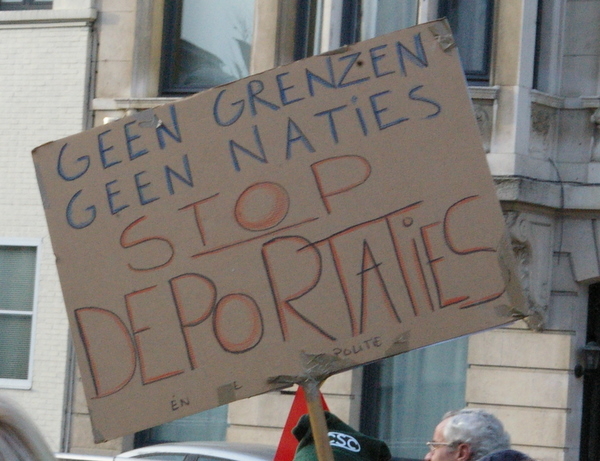 GEEN GRENZEN
GEEN NATIES
STOP
DEPORTATiES
ÉN POLITE
CSC